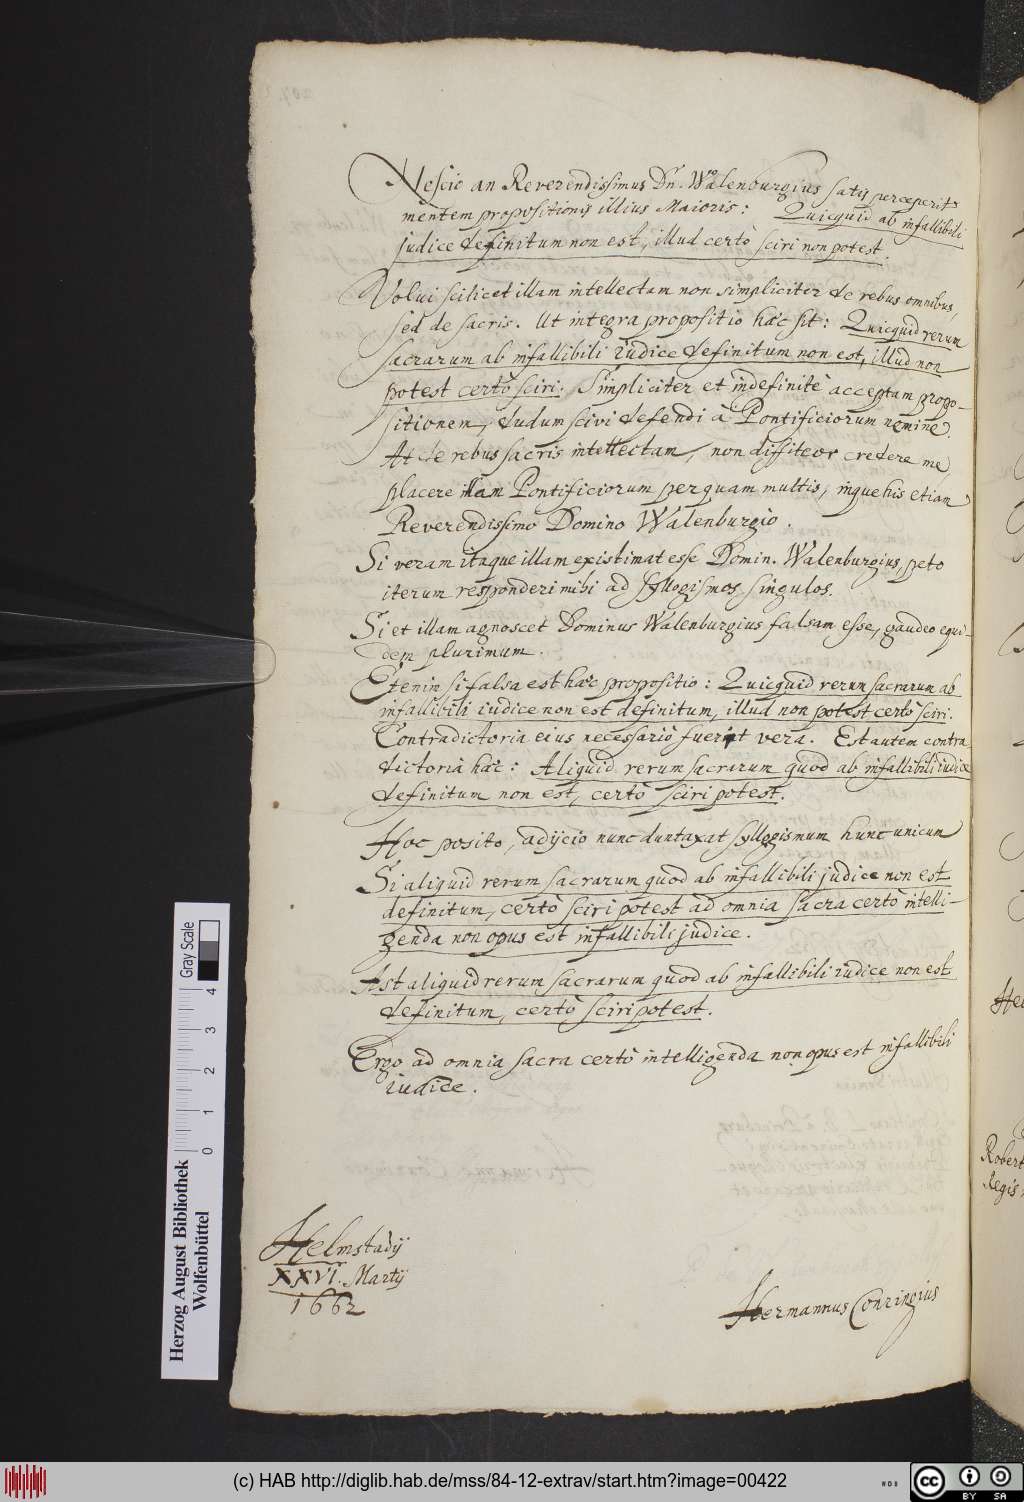 Nescio an Reverendissimus Dn. Walenburgius satis perceperit
mentem propositionis illius Maioris: Quicquid ab infallibili
judice definitum non est, illud certò sciri non potest.
Volui scilicet illam intellectam non simpliciter de rebus omnibus,
sed de sacris. Ut integra propositio haec sit: Quicquid rerum
sacrarum ab infallibili iudice definitum non est, illud non
potest certò sciri. Simpliciter et indefinitè acceptam propo-
sitionem, dudum scivi defendi à Pontificiorum nemine.
At de rebus sacris intellectam, non diffiteor credere me
placere illam Pontificiorum perquam multis, inque his etiam
Reverendissimo Domino Walenburgio.
Si veram itaque illam existimat esse Domin. Walenburgius, peto
iterum responderi mihi ad syllogismos singulos.
Si et illam agnoscet Dominus Walenburgius falsam esse, gaudeo equi-
dem plurimum.
Etenim si falsa est haec propositio: Quicquid rerum sacrarum ab
infallibili iudice non est definitum, illud non potest certò sciri.
Contradictoria eius necessariò fuerit vera. Est autem contra-
dictoria haec: Aliquid rerum sacrarum quod ab infallibili iudice
definitum non est, certò sciri potest.
Hoc posito, adijcio nunc duntaxat syllogismum hunc unicum
Si aliquid rerum sacrarum quod ab infallibili judice non est
definitum, certò sciri potest ad omnia sacra certò intelli-
genda non opus est infallibili judice.
Ast aliquid rerum sacrarum quod ab infallibili iudice non est
definitum, certò sciri potest.
Ergo ad omnia sacra certò intelligenda non opus est infallibili
iudice.
Helmstadij
XXVI. Martij
1662
Hermannus Conringius
Robert
Regis
Herzog August Bibliothek
Wolfenbüttel
Gray Scale
0 1 2 3 4
(c) HAB http://diglib.hab.de/mss/84-12-extrav/start.htm?image=00422
cc BY SA